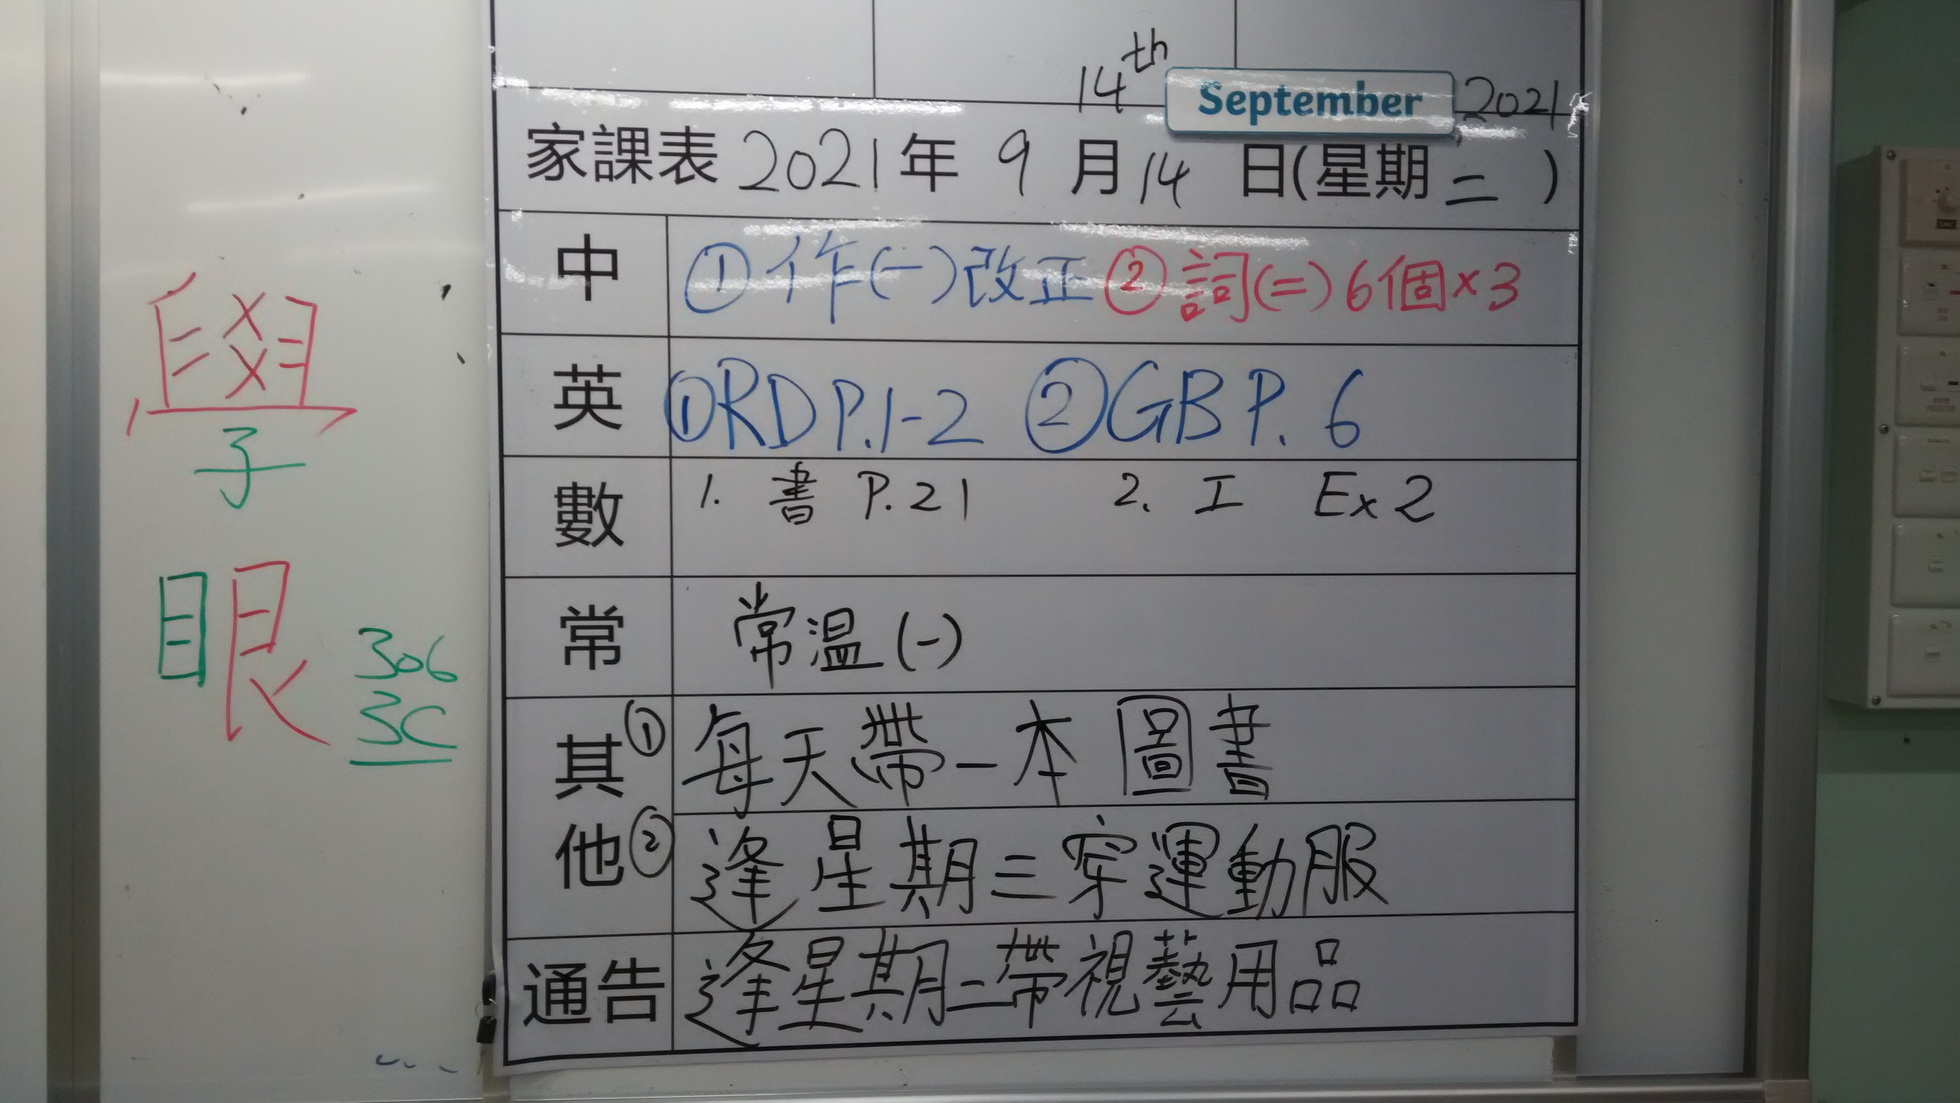 14th September 2021
家課表 2021年 9 月 14 日(星期二 )
中 ①作(一)改正 ②詞(二) 6個×3
英 ①RD P.1-2 ②GB P. 6
數 1. 書 P.21 2. 工 Ex 2
常 常溫(一)
其他 ① 每天帶一本圖書
② 逢星期三穿運動服
通告 逢星期二帶視藝用品
學
眼
306
3C